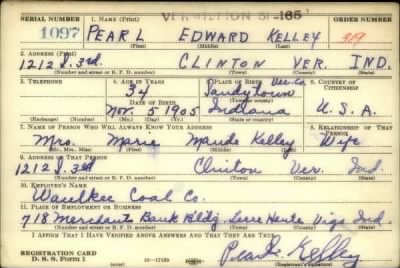 VERMILLION 81-165
SERIAL NUMBER 1. NAME (Print) ORDER NUMBER
1097 PEARL EDWARD KELLEY 319
(First) (Middle) (Last)
2. ADDRESS (Print)
1212 S. 3rd. CLINTON VER. IND.
(Number and street or R. F. D. number) (Town) (County) (State)
3. TELEPHONE 4. AGE IN YEARS 5. PLACE OF BIRTH 6. COUNTRY OF CITIZENSHIP
34 Ver. Co.
Sandytown
DATE OF BIRTH (Town or county)
Nov. 5 1905 Indiana U. S. A.
(Exchange) (Number) (Mo.) (Day) (Yr.) (State or country)
7. NAME OF PERSON WHO WILL ALWAYS KNOW YOUR ADDRESS 8. RELATIONSHIP OF THAT PERSON
Mrs. Marie Maude Kelley Wife
(Mr., Mrs., Miss) (First) (Middle) (Last)
9. ADDRESS OF THAT PERSON
1212 S. 3rd Clinton Ver. Ind.
(Number and street or R. F. D. number) (Town) (County) (State)
10. EMPLOYER'S NAME
Coal Co.
11. PLACE OF EMPLOYMENT OR BUSINESS
718 Merchants Bank Bldg. Terre Haute Vigo Ind.
(Number and street or R. F. D. number) (Town) (County) (State)
I AFFIRM THAT I HAVE VERIFIED ABOVE ANSWERS AND THAT THEY ARE TRUE.
REGISTRATION CARD
D. S. S. Form 1 16-17105 Pearl Kelley